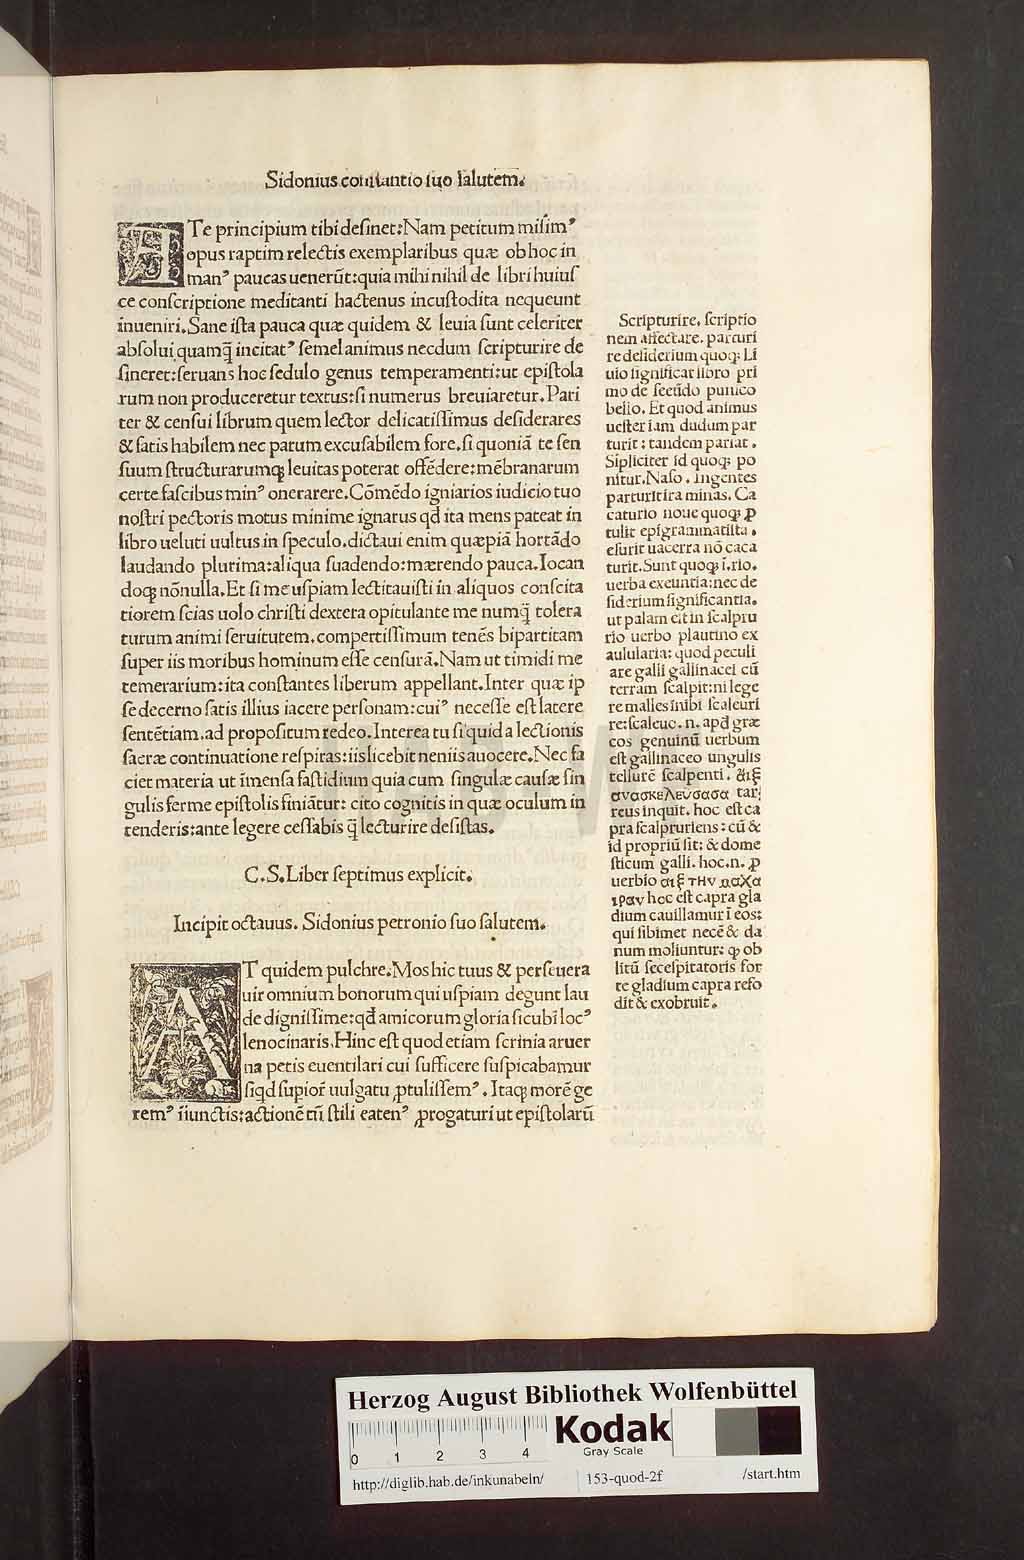 Sidonius constantio suo salutem.
A Te principium tibi desinet: Nam petitum misimꝰ
opus raptim relectis exemplaribus quæ ob hoc in
manꝰ paucas uenerūt: quia mihi nihil de libri huius
ce conscriptione meditanti hactenus incustodita nequeunt
inueniri. Sane ista pauca quæ quidem & leuia sunt celeriter
absolui quamq̄ incitatꝰ semel animus necdum scripturire de
sineret: seruans hoc sedulo genus temperamenti: ut epistola
rum non produceretur textus: si numerus breuiaretur. Pari
ter & censui librum quem lector delicatissimus desiderares
& satis habilem nec parum excusabilem fore. si quoniā te sen
suum structurarumqꝫ leuitas poterat offēdere: mēbranarum
certe fascibus minꝰ onerarere. Cōmēdo igniarios iudicio tuo
nostri pectoris motus minime ignarus qđ ita mens pateat in
libro ueluti uultus in speculo. dictaui enim quæpiā hortādo
laudando plurima: aliqua suadendo: mærendo pauca. Iocan
doqꝫ nōnulla. Et si me uspiam lectitauisti in aliquos conscita
tiorem scias uolo christi dextera opitulante me numq̄ tolera
turum animi seruitutem. compertissimum tenēs bipartitam
super iis moribus hominum esse censurā. Nam ut timidi me
temerarium: ita constantes liberum appellant. Inter quæ ip
se decerno satis illius iacere personam: cuiꝰ necesse est latere
sentētiam. ad propositum redeo. Interea tu si quid a lectionis
sacræ continuatione respiras: iis licebit neniis auocere. Nec fa
ciet materia ut īmensa fastidium quia cum singulæ causæ sin
gulis ferme epistolis finiātur: cito cognitis in quæ oculum in
tenderis: ante legere cessabis q̄ lecturire desistas.
C. S. Liber septimus explicit.
Incipit octauus. Sidonius petronio suo salutem.
A T quidem pulchre. Mos hic tuus & perseuera
uir omnium bonorum qui uspiam degunt lau
de dignissime: qđ amicorum gloria sicubi locꝰ
lenocinaris. Hinc est quod etiam scrinia aruer
na petis euentilari cui sufficere suspicabamur
siqđ supiori uulgatu ꝓtulissemꝰ. Itaqꝫ morē ge
remꝰ iīunctis: actionē tn̄ stili eatenꝰ ꝓrogaturi ut epistolarū
Scripturire, scriptio
nem affectare. parturi
re desiderium quoqꝫ Li
uio significat libro pri
mo de secūdo punico
bello. Et quod animus
uester iam dudum par
turit: tandem pariat.
Sīpliciter id quoqꝫ po
nitur. Naso. Ingentes
parturit ira minas. Ca
caturio noue quoqꝫ ꝓ
tulit epigrammatista.
esurit uacerra nō caca
turit. Sunt quoqꝫ ī. rio.
uerba exeuntia: nec de
siderium significantia.
ut palam est in scalpu
rio uerbo plautino ex
aulularia: quod peculi
are galli gallinacei cū
terram scalpit: ni lege
re malles inibi scaleuri
re: scaleuc. n. apđ græ
cos genuinū uerbum
est gallinaceo ungulis
tellurē scalpenti. αἰξ
ανασκελευσασα tar:
reus inquit. hoc est ca
pra scalpruriens: cū &
id propriū sit: & dome
sticum galli. hoc. n. ꝓ
uerbio αιξ την μαχα
ιραν hoc est capra gla
dium cauillamur ī eos:
qui sibimet necē & da
num moliuntur: qꝫ ob
litū secespitatoris for
te gladium capra refo
dit & exobruit.
Herzog August Bibliothek Wolfenbüttel
0 1 2 3 4
Kodak
Gray Scale
http://diglib.hab.de/inkunabeln/
153-quod-2f
/start.htm